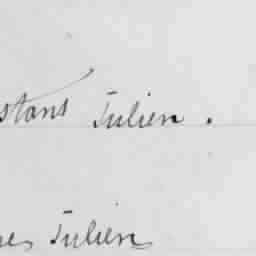 stans Julien.
es Julien